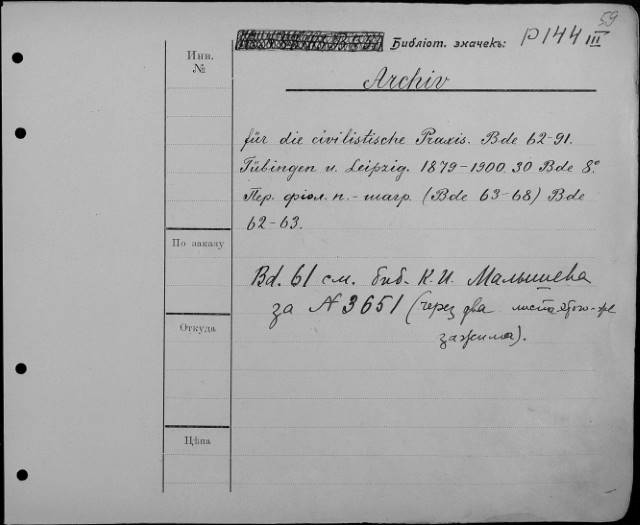 59
Библіот. значекъ: P 144 III
Инв.
№
Archiv
für die civilistische Praxis. Bde 62-91.
Tübingen u. Leipzig. 1879-1900. 30 Bde 8º
Пер. фіол. п.-шагр. (Bde 63-68) Bde
62-63.
По заказу
Bd. 61 см. биб. К. И. Малышева
за № 3651 (через два листа этого-же
зажима).
Откуда
Цѣна